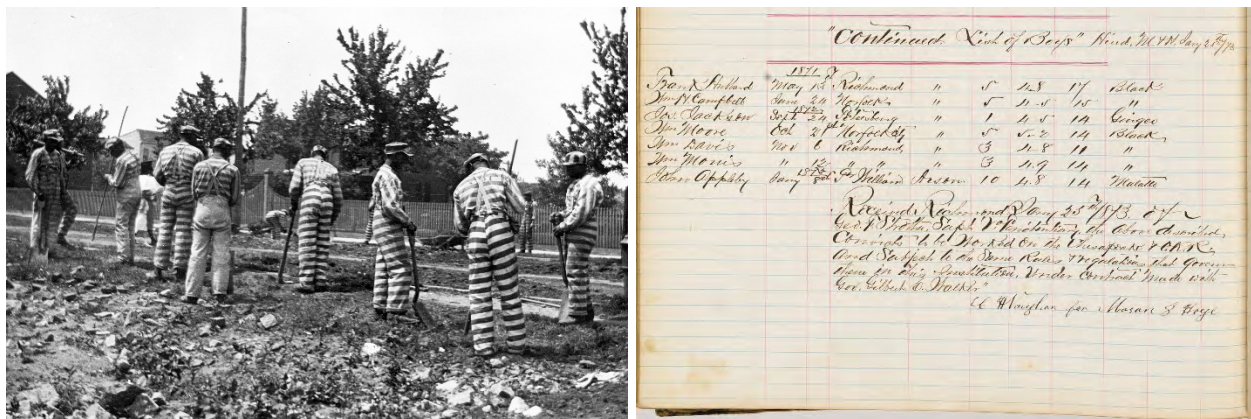 "Continued List of Boys" Richd, Va Jany 25th/73
1871
Frank Hubbard May 12 Richmond " 5 4.8 17 Black
Wm H Campbell June 24 Norfolk " 5 4.5 15 "
1872
Joe Jackson Sept 24 Petersburg " 1 4.5 14 Ginger
Wm Moore Oct 21st Norfolk City " 5 5.2 14 Black
Wm Davis Nov 6 Richmond " 3 4.8 11 "
Wm Monis " 12 " " 3 4.9 14 "
1873
John Appleby Jany Pr William Arson 10 4.8 14 Malatto
Received, Richmond Va Jany 25th/1873 of
Geo F Strother Supt Va Penitentiary the above described
Convicts to be Worked on the Chesapeake & O.R.R.
and Subject to the Same Rules & regulations that govern
them in the Institution. Under Contract Made with
Gov. Gilbert C. Walker"
C H Vaughan for Mason & Hoge